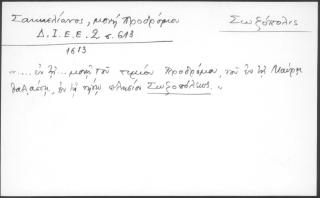 Σακκελίωνος, μονή Προδρόμου
Σωζόπολις
Δ.Ι.Ε.Ε. 2 σ. 613
1613
«.... ἐν τῇ... μονῇ τοῦ τιμίου Προδρόμου, τοῦ ἐν τῇ Μαύρῃ
θαλάσσῃ, ἐν τῇ νήσῳ πλησίον Σωζοπόλεως.»